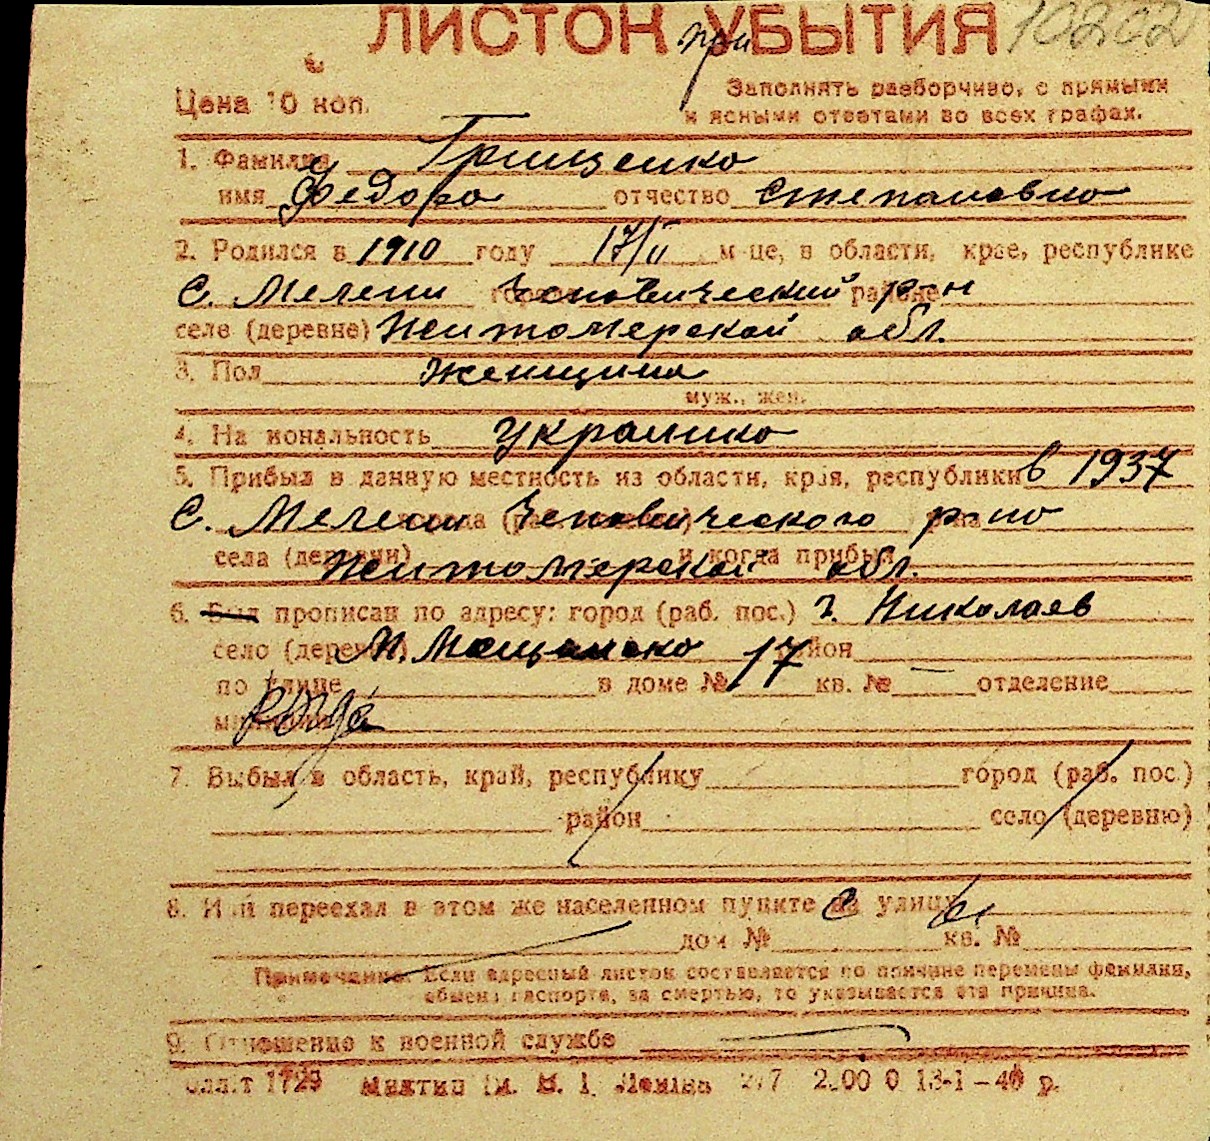 ЛИСТОК УБЫТИЯ 10202
при
Заполнять разборчиво, с прямыми
Цена 10 коп. и ясными ответами во всех графах.
1. Фамилия Грищенко
имя Федора отчество Степановна
2. Родился в 1910 году 17/II м-це, в области, крае, республике
С. Мелени города Чеповический районе р-н
селе (деревне) Житомерской обл.
3. Пол Женщина
муж., жен.
4. Национальность украинка
5. Прибыл в данную местность из области, края, республики в 1937
С. Мелени города Чеповического р-на
села (деревни) и когда прибыл
Житомерской обл.
6. Был прописан по адресу: город (раб. пос.) г. Николаев
село (деревня) М. Мещанско 17 район
по улице в доме № кв. № — отделение
милиции
7. Выбыл в область, край, республику город (раб. пос.)
район село (деревню)
8. Или переехал в этом же населенном пункте на улицу
дом № кв. №
Примечание. Если адресный листок составляется по причине перемены фамилии,
обмена паспорта, за смертью, то указывается эта причина.
9. Отношение к военной службе
1729 Ленина 13-1-40 р.